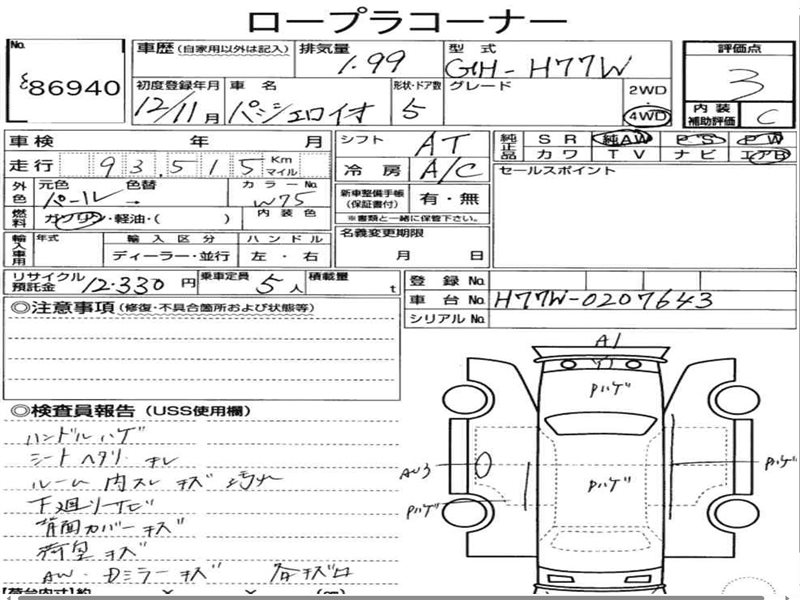 ロープラコーナー
No. 86940
車歴 (自家用以外は記入) 排気量 1.99 型式 GH-H77W
評価点 3
内装補助評価 C
初度登録年月 12/11月 車名 パジェロイオ 形状・ドア数 5 グレード 2WD 4WD
車検 年 月 シフト AT
純正品 SR 純AW PS PW
カワ TV ナビ エアB
走行 93,515 Km マイル 冷房 A/C
セールスポイント
外色 元色 パール 色替 → カラーNo. W75
新車整備手帳(保証書付) 有・無
※書類と一緒に保管下さい。
燃料 ガソリン・軽油・( ) 内装色
名義変更期限 月 日
輸入車用 年式 輸入区分 ディーラー・並行 ハンドル 左・右
リサイクル預託金 12,330円 乗車定員 5人 積載量 t
登録No.
車台No. H77W-0207643
シリアルNo.
◎注意事項 (修復・不具合箇所および状態等)
◎検査員報告 (USS使用欄)
ハンドルハゲ
シートヘタリ キレ
ルーム内スレ キズ 汚れ
下廻りサビ
背面カバーキズ
荷室キズ
AW・Dミラーキズ 各キズ
A1
Pハゲ
Pハゲ
AU3
Pハゲ
Pハゲ